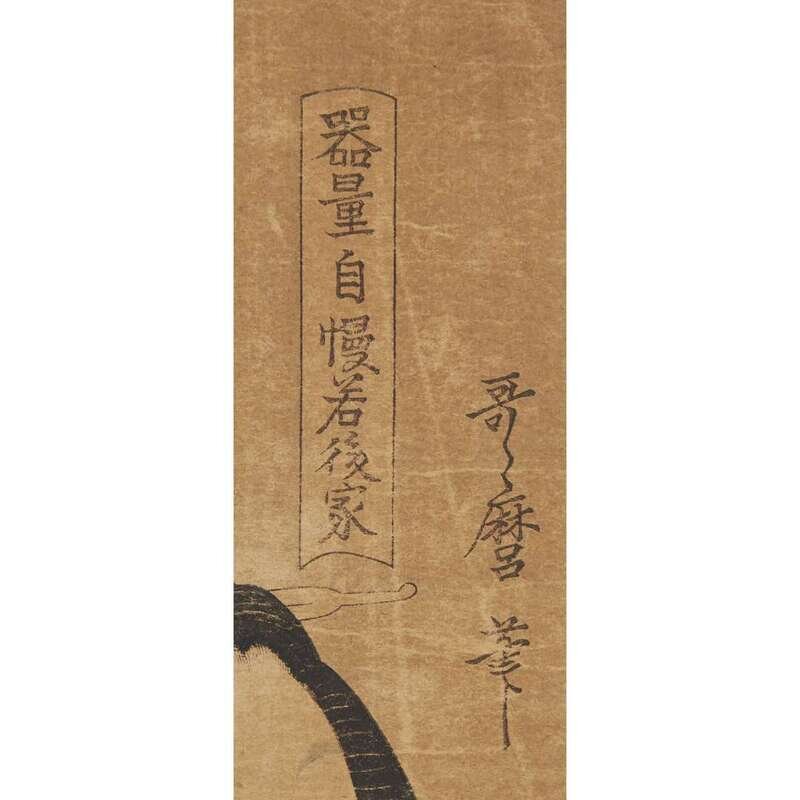 哥麿筆
器量自慢若後家